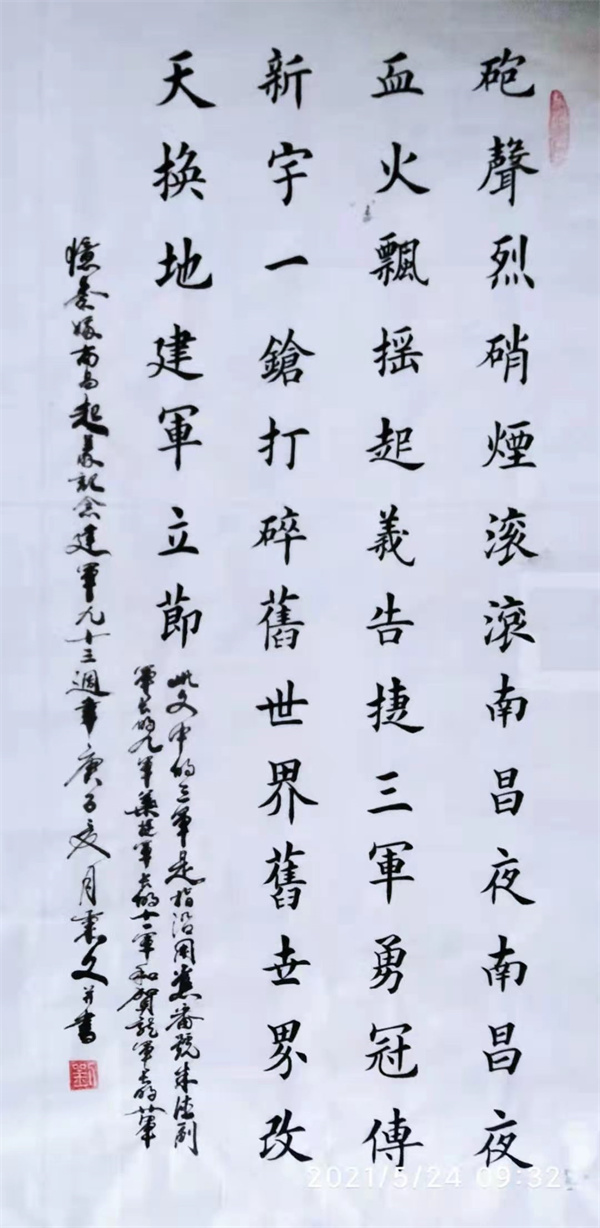 砲聲烈硝煙滾滾南昌夜南昌夜
血火飄搖起義告捷三軍勇冠傳
新宇一鎗打碎舊世界舊世界改
天換地建軍立節
此文中的三軍是指沿用舊番號朱德副
軍長的九軍葉挺軍長的十一軍和賀龍軍長的廿軍
憶秦娥南昌起義記念建軍九十三週年庚子夏月文并書
劉
2021/5/24 09:32